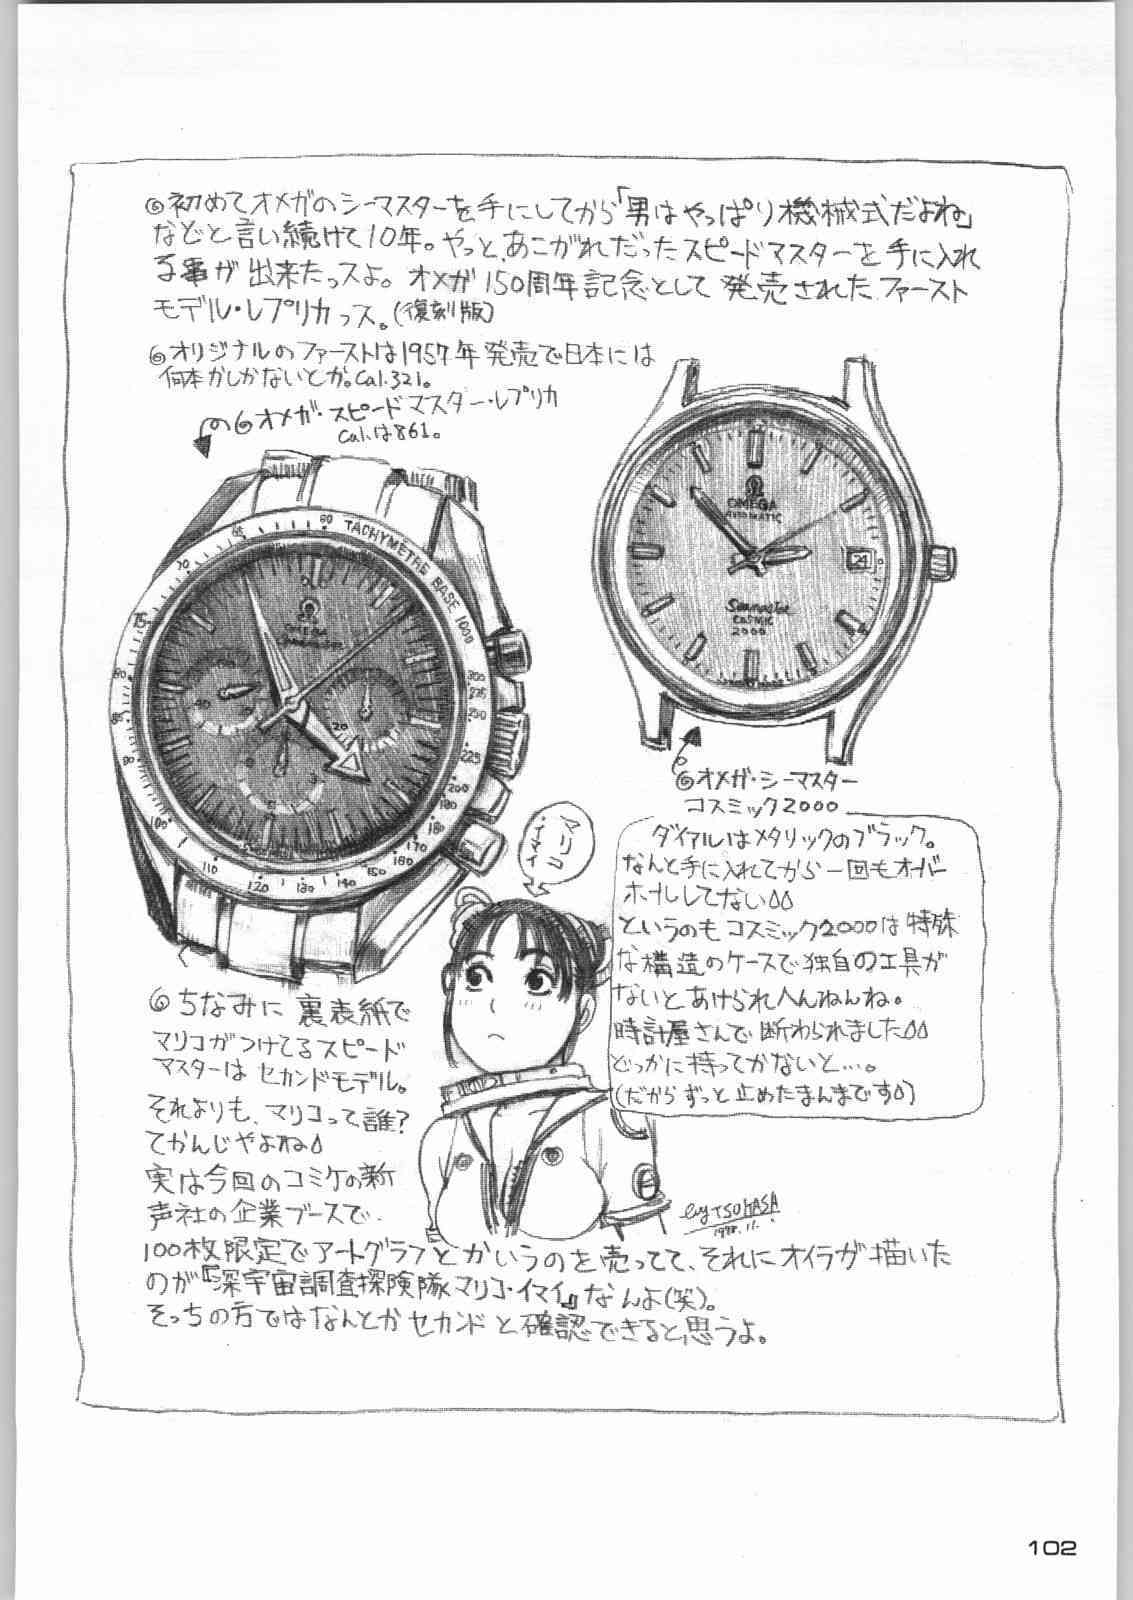 ◎初めてオメガのシーマスターを手にしてから「男はやっぱり機械式だよね」
などと言い続けて10年。やっと、あこがれだったスピードマスターを手に入れ
る事が出来たっスよ。オメガ150周年記念として発売されたファースト
モデル・レプリカっス。(復刻版)
◎オリジナルのファーストは1957年発売で日本には
何本かしかないとか。Cal.321。
◎オメガ・スピードマスター・レプリカ
Cal.は861。
TACHYMETRE BASE 1000
60
65
70
75
80
85
90
100
110
120
130
140
150
160
170
180
190
200
225
250
275
300
Ω
OMEGA
Speedmaster
Ω
OMEGA
AUTOMATIC
24
Seamaster
COSMIC
2000
◎オメガ・シーマスター
コスミック2000
ダイアルはメタリックのブラック。
なんと手に入れてから一回もオーバー
ホールしてない
というのもコスミック2000は特殊
な構造のケースで独自の工具が
ないとあけられへんねんね。
時計屋さんで断わられました
どっかに持ってかないと…。
(だからずっと止めたまんまです)
マリコ
・イマイ
◎ちなみに裏表紙で
マリコがつけてるスピード
マスターはセカンドモデル。
それよりも、マリコって誰?
てかんじやよね
実は今回のコミケの新
声社の企業ブースで、
100枚限定でアートグラフとかいうのを売ってて、それにオイラが描いた
のが『深宇宙調査探険隊マリコ・イマイ』なんよ(笑)。
そっちの方ではなんとかセカンドと確認できると思うよ。
by TSUKASA
1998.11.
102